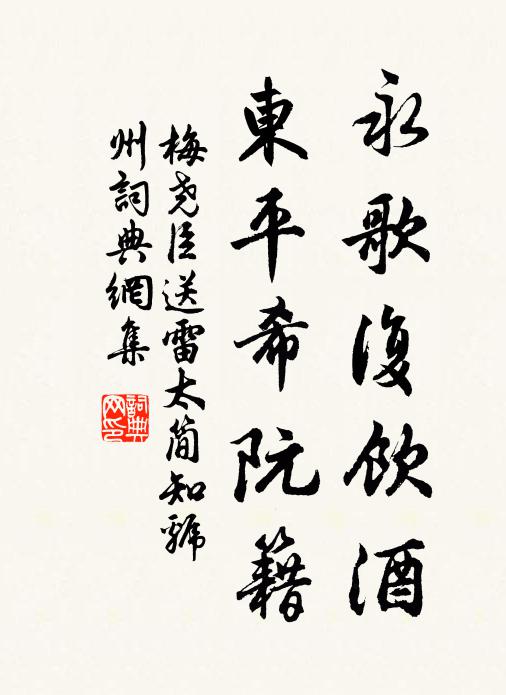 永歌復飲酒
東平希阮籍
梅堯臣送雷太簡知虢
州詞典網集
詞典網印